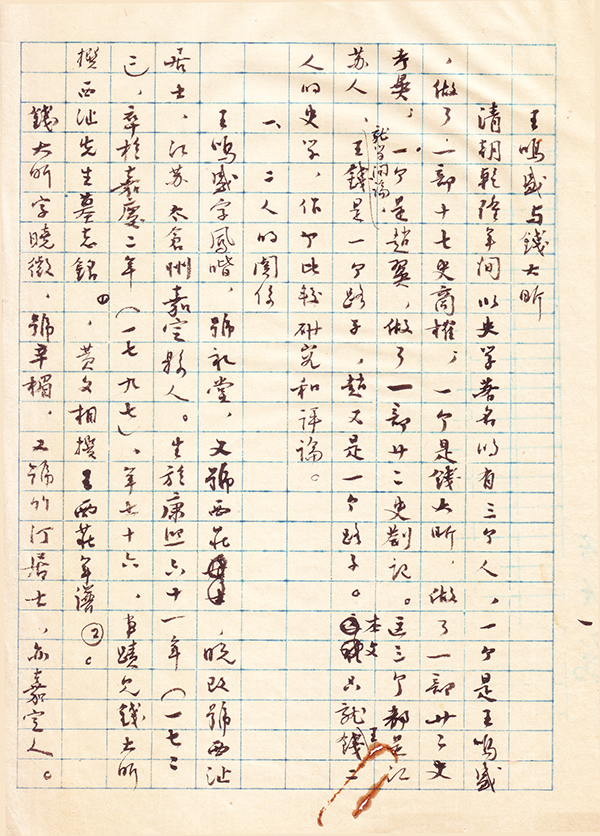 王鳴盛与錢大昕
清朝乾隆年间以史学著名的有三个人，一个是王鳴盛
，做了一部十七史商榷，一个是錢大昕，做了一部廿二史
考異，一个是趙翼，做了一部廿二史劄記。这三个都是江
苏人，就学问論，王錢是一个路子，趙又是一个路子。本文只就錢王二
人的史学，作个比較研究和评論。
一、二人的関係
王鳴盛字鳳喈，號礼堂，又號西莊，晚改號西沚
居士，江苏太倉州嘉定縣人。生於康熙六十一年（一七二
二），卒於嘉慶二年（一七九七），年七十六，事蹟見錢大昕
撰西沚先生墓志銘①，黄文相撰王西莊年譜②。
錢大昕字曉徵，號辛楣，又號竹汀居士，亦嘉定人。